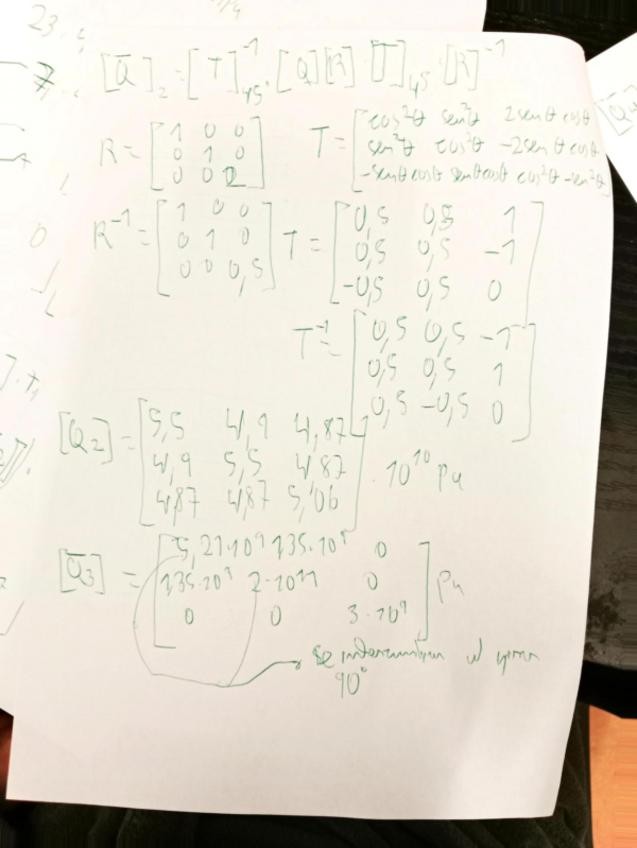 23.
[Q̅]₂ = [T]⁻¹₄₅ · [Q][R] · [T]₄₅ · [R]⁻¹
R = [1 0 0
0 1 0
0 0 2]
T = [cos²θ sen²θ 2senθcosθ
sen²θ cos²θ -2senθcosθ
-senθcosθ senθcosθ cos²θ-sen²θ]
R⁻¹ = [1 0 0
0 1 0
0 0 0,5]
T = [0,5 0,5 1
0,5 0,5 -1
-0,5 0,5 0]
T⁻¹ = [0,5 0,5 -1
0,5 0,5 1
0,5 -0,5 0]
[Q̅₂] = [5,5 4,9 4,87
4,9 5,5 4,87
4,87 4,87 5,06] · 10¹⁰ Pa
[Q̅₃] = [5,21·10⁹ 1,35·10⁹ 0
1,35·10⁹ 2·10¹¹ 0
0 0 3·10⁹] Pa
se intercambian al girar
90°